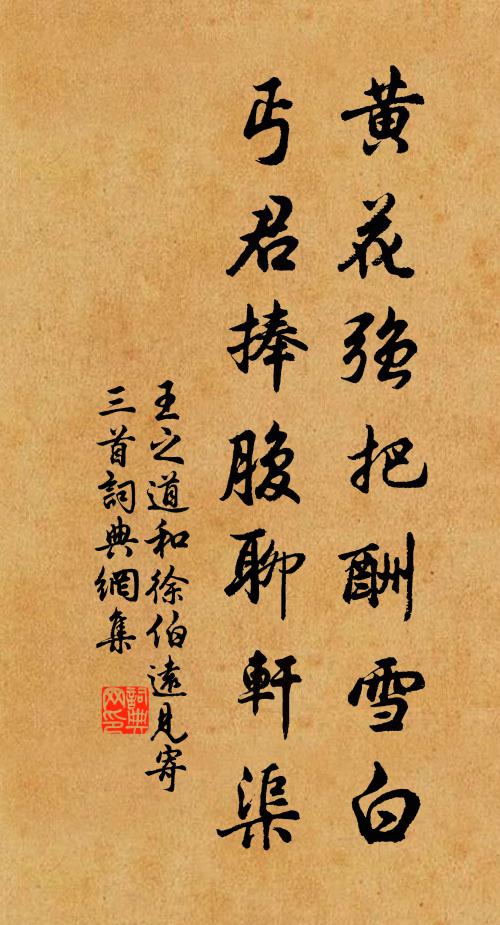 黄花强把酬雪白
丐君捧腹聊軒渠
王之道和徐伯遠見寄
三首詞典網集
詞典
网印